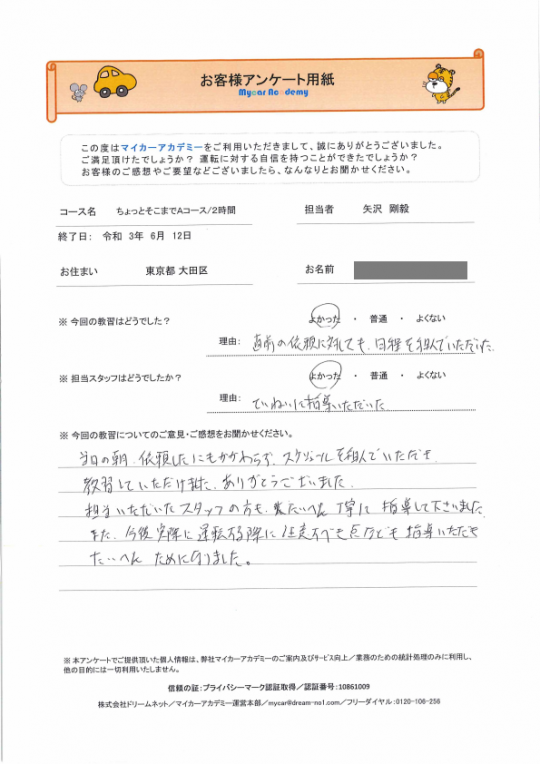 お客様アンケート用紙
Mycar Academy
この度はマイカーアカデミーをご利用いただきまして、誠にありがとうございました。
ご満足頂けたでしょうか？ 運転に対する自信を持つことができたでしょうか？
お客様のご感想やご要望などございましたら、なんなりとお聞かせください。
コース名 ちょっとそこまでAコース/2時間 担当者 矢沢 剛毅
終了日： 令和 3年 6月 12日
お住まい 東京都 大田区 お名前
※ 今回の教習はどうでした？ よかった ・ 普通 ・ よくない
理由： 直前の依頼に対しても、日程を組んでいただいた
※ 担当スタッフはどうでしたか？ よかった ・ 普通 ・ よくない
理由： ていねいに指導いただいた
※ 今回の教習についてのご意見・ご感想をお聞かせください。
当日の朝、依頼したにもかかわらず、スケジュールを組んでいただき
教習していただけました。ありがとうございました。
担当いただいたスタッフの方も、たいへん 丁寧に 指導して下さいました。
また、今後実際に運転する際に注意すべき点なども 指導いただき
たいへん ためになりました。
※ 本アンケートでご提供頂いた個人情報は、弊社マイカーアカデミーのご案内及びサービス向上／業務のための統計処理のみに利用し、
他の目的には一切利用いたしません。
信頼の証：プライバシーマーク認証取得／認証番号：10861009
株式会社ドリームネット／マイカーアカデミー運営本部／mycar@dream-no1.com／フリーダイヤル：0120-106-256